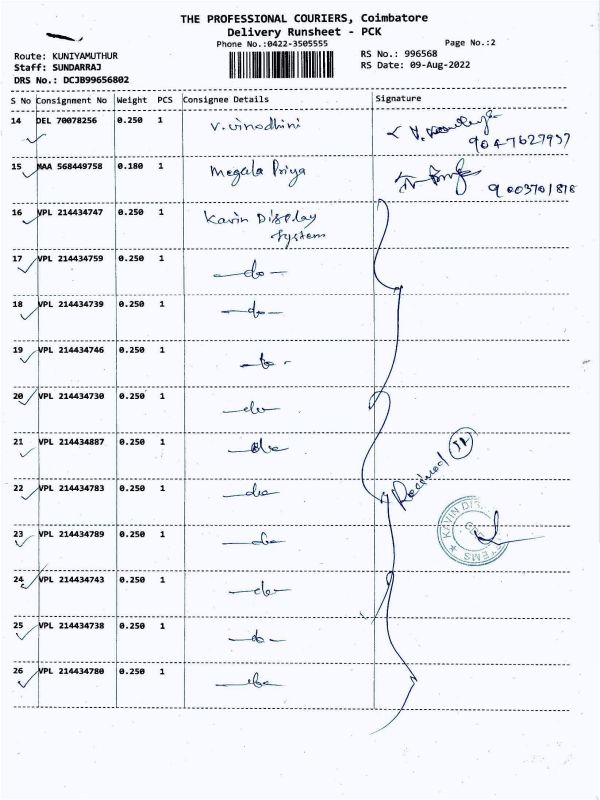 THE PROFESSIONAL COURIERS, Coimbatore
Delivery Runsheet - PCK
Phone No.:0422-3505555
Page No.:2
Route: KUNIYAMUTHUR
Staff: SUNDARRAJ
DRS No.: DCJB99656802
RS No.: 996568
RS Date: 09-Aug-2022
S No Consignment No Weight PCS Consignee Details Signature
14 DEL 70078256 0.250 1 V. Vinodhini 9047627957
15 MAA 568449758 0.180 1 Megala Priya 9003701878
16 VPL 214434747 0.250 1 Kavin Display
System
17 VPL 214434759 0.250 1 -do-
18 VPL 214434739 0.250 1 -do-
19 VPL 214434746 0.250 1 -do-
20 VPL 214434730 0.250 1 -do-
21 VPL 214434887 0.250 1 -do-
22 VPL 214434783 0.250 1 -do-
Received
23 VPL 214434789 0.250 1 -do-
KAVIN
24 VPL 214434743 0.250 1 -do-
25 VPL 214434738 0.250 1 -do-
26 VPL 214434780 0.250 1 -do-